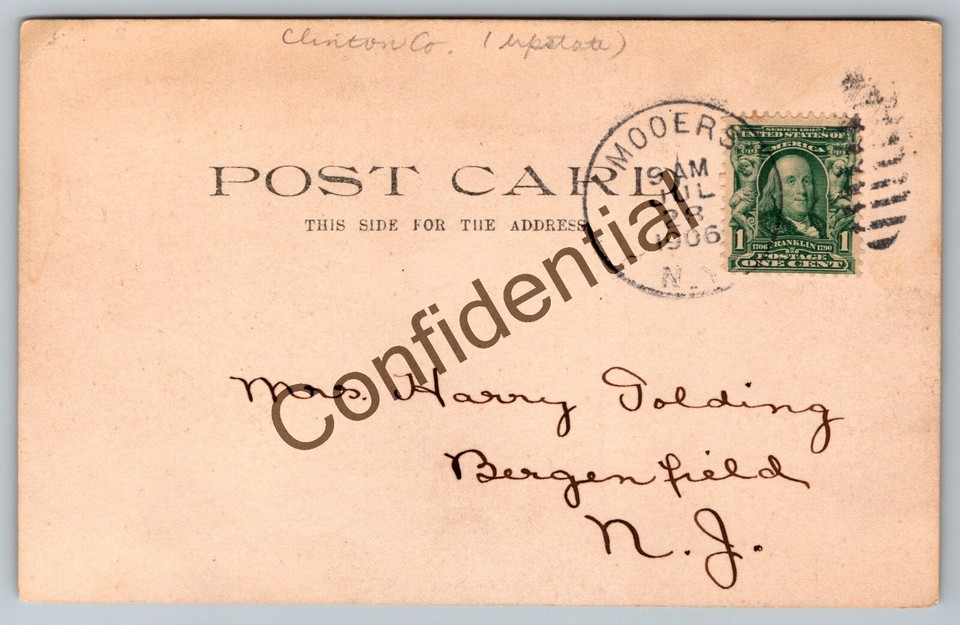 Clinton Co. (upstate)
MOOERS
9 AM
JUL
28
1906
N.Y.
SERIES 1902
UNITED STATES OF
AMERICA
1 1706 FRANKLIN 1790 1
POSTAGE
ONE CENT
POST CARD
THIS SIDE FOR THE ADDRESS
Confidential
Mrs. Harry Golding
Bergenfield
N.J.